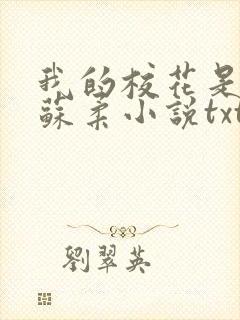 我的校花是
蘇柔小說txt
劉翠英